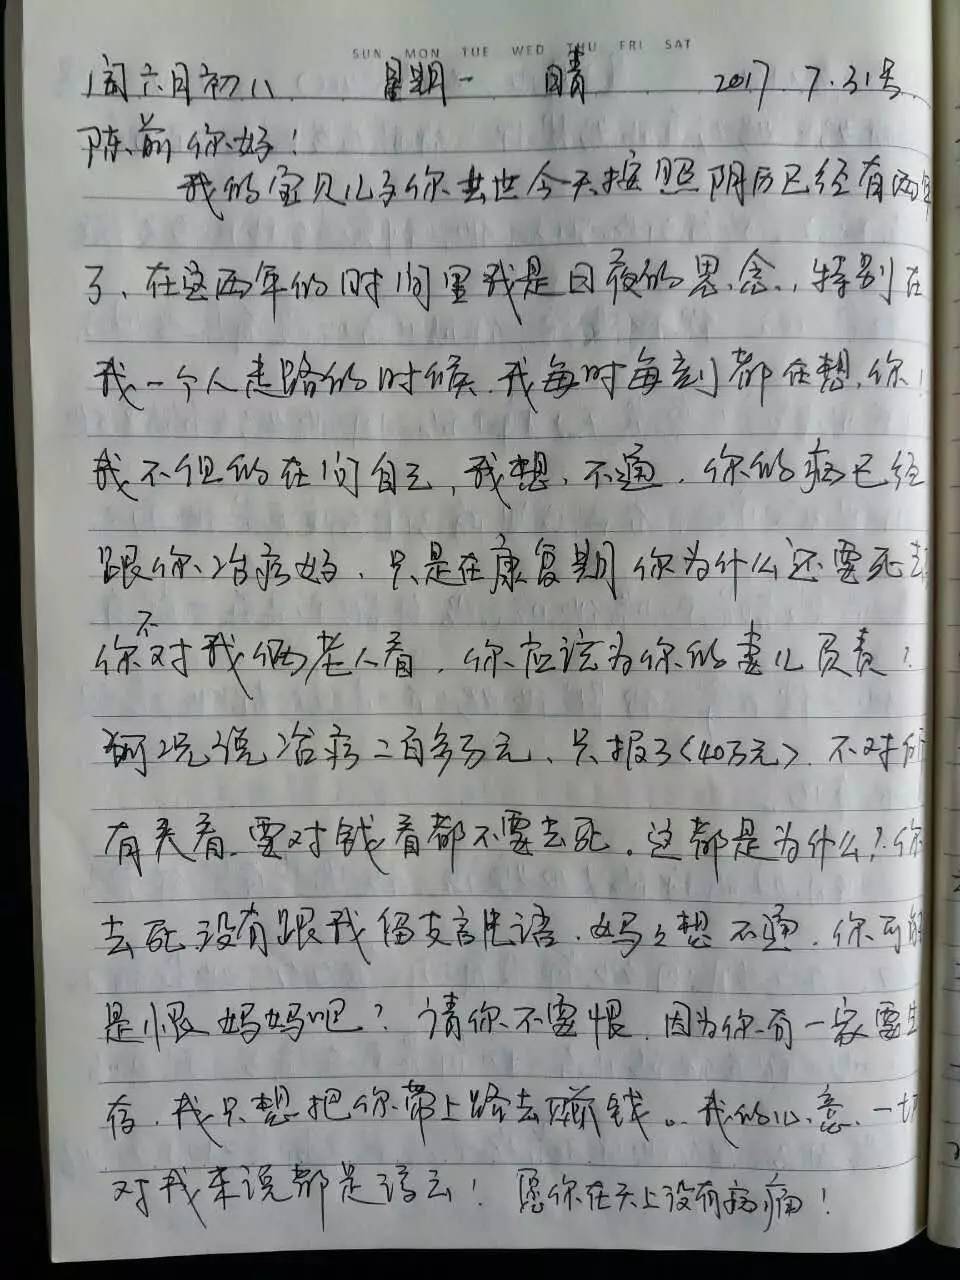 SUN MON TUE WED THU FRI SAT
闰六月初八 星期一 晴 2017.7.31号
陈前你好！
我的宝贝儿子你去世今天按照阴历已经有两年
了、在这两年的时间里我是日夜的思念，特别在
我一个人走路的时候.我每时每刻都在想.你！
我不但的在问自己,我想.不通.你的病已经
跟你治疗好、只是在康复期你为什么还要死去
你不对我俩老人看.你应该为你的妻儿负责！
何况说治疗二百多万元、只报了<40万元>.不对所
有来看.要对钱看都不要去死.这都是为什么？你
去死没有跟我留支言片语.妈妈想不通.你可能
是恨妈妈吧？请你不要恨.因为你有一家要生
存.我只想把你带上路去赚钱。我的心意.一切
对我来说都是该去！愿你在天上没有病痛！